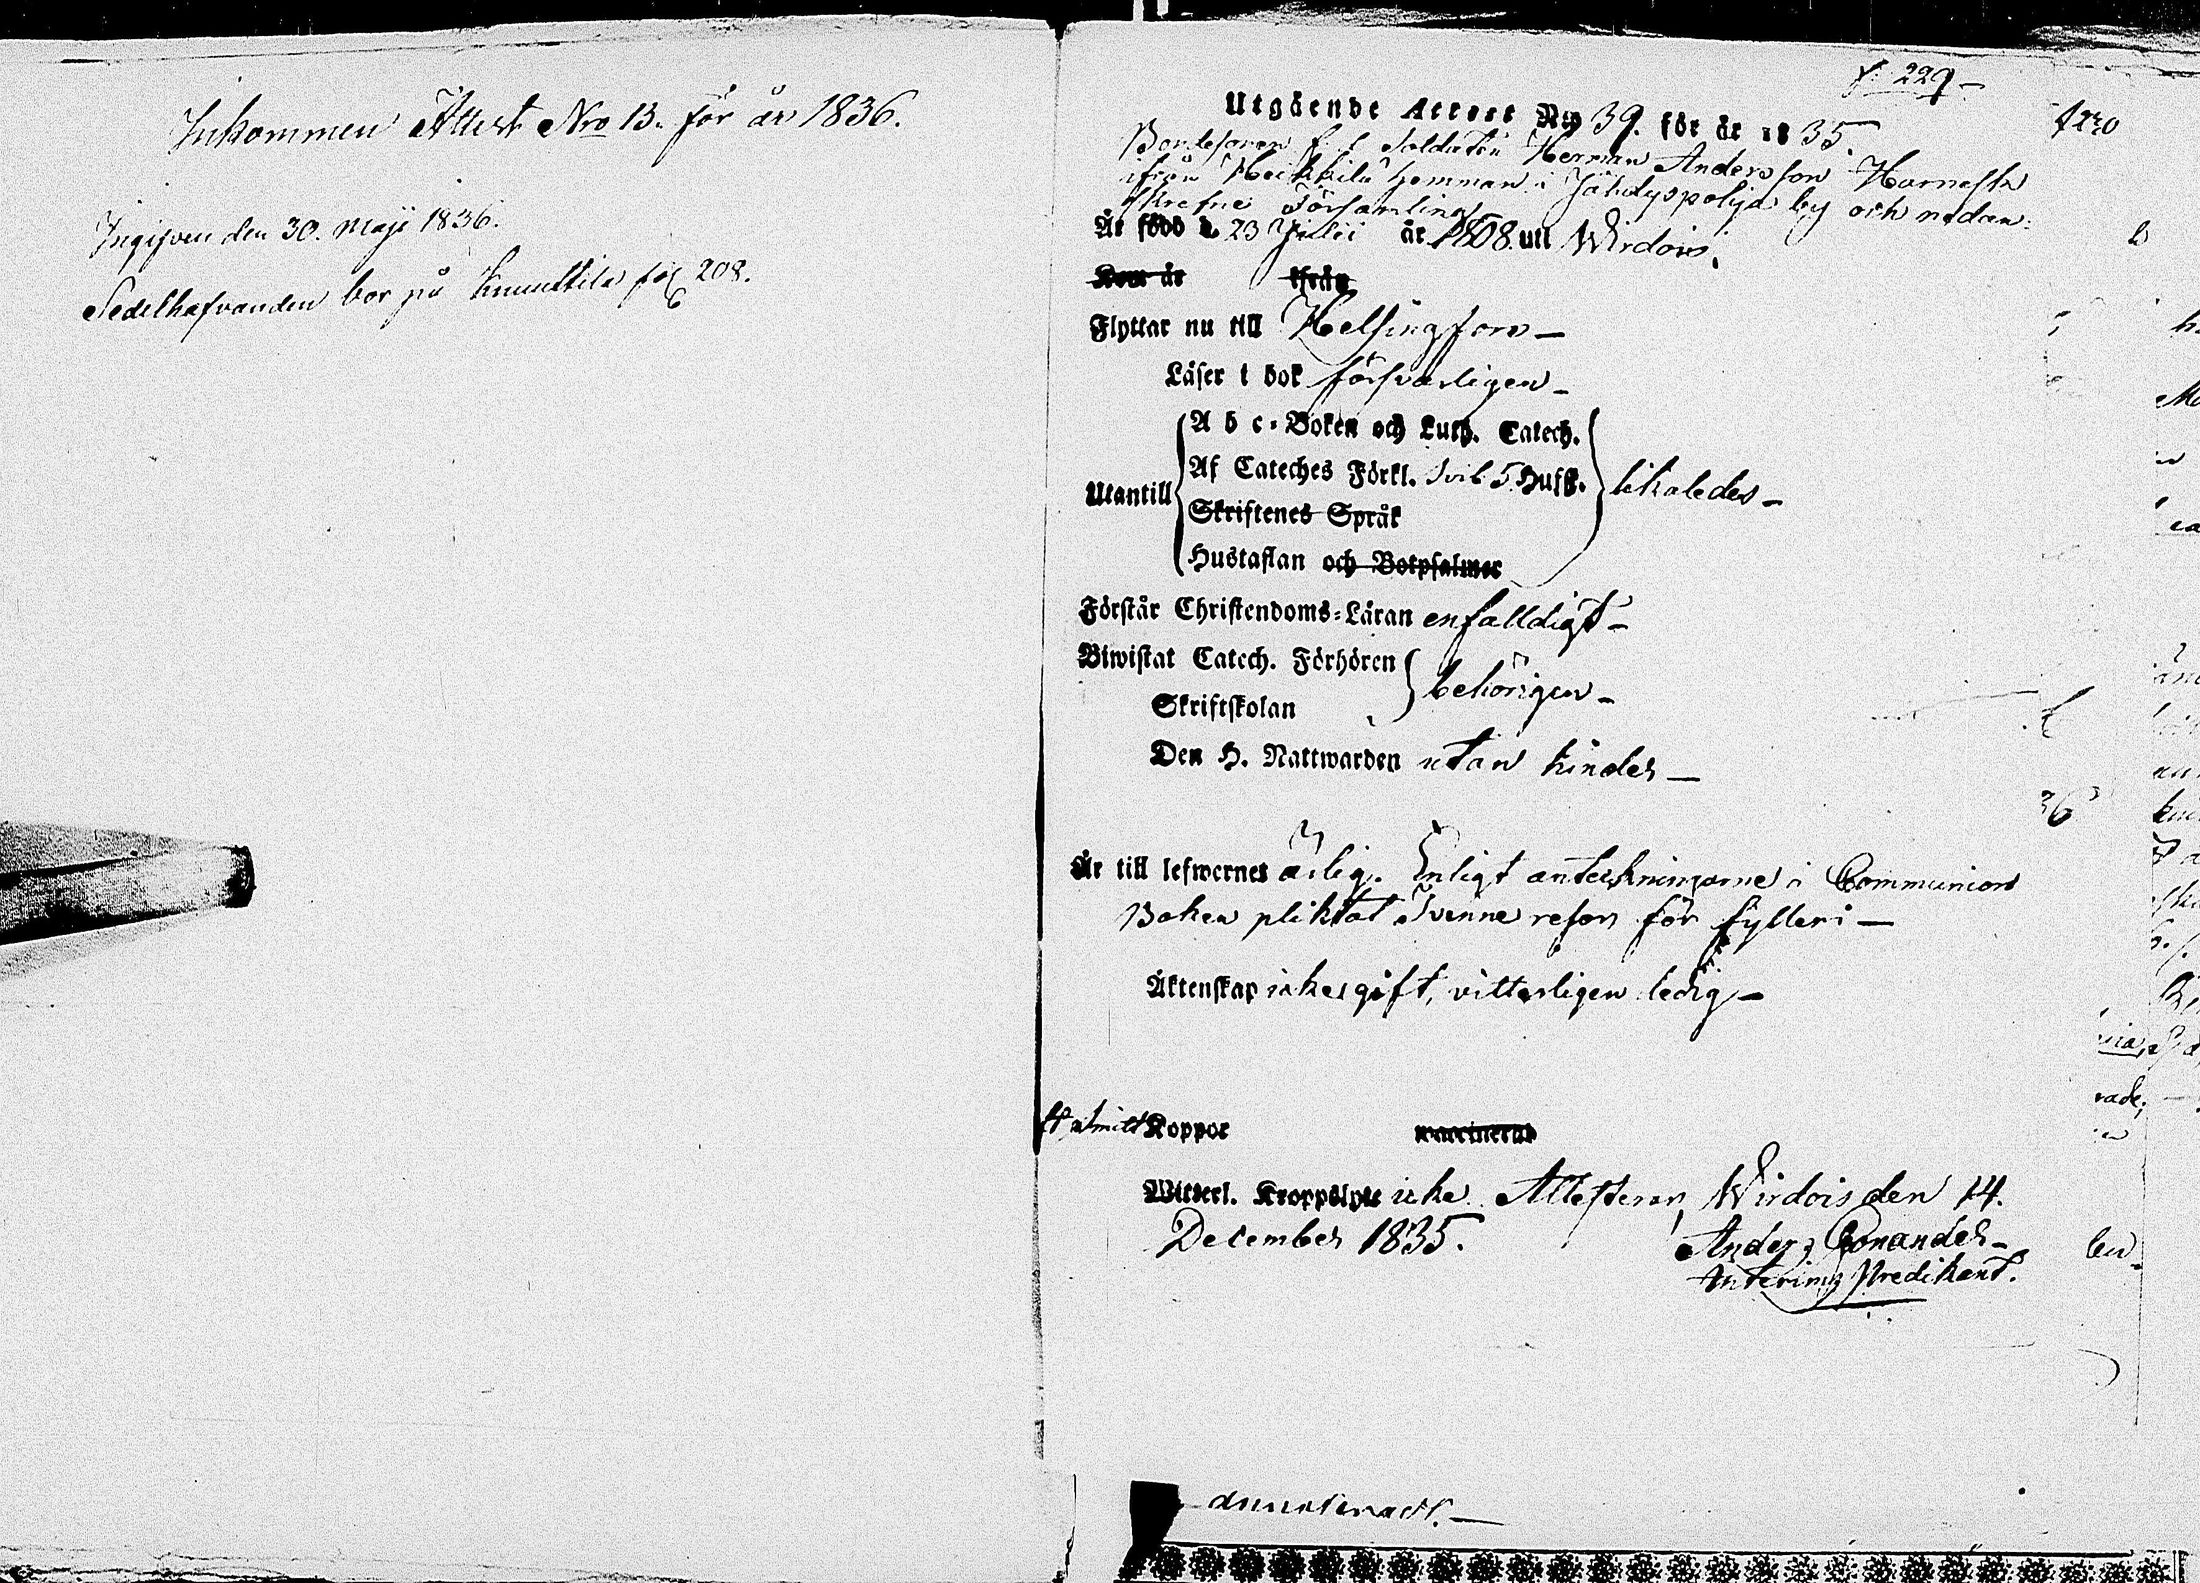 Inkommen Attest Nro 13. för år 1836.
Ingifven den 30. Maji 1836.
Sedelhafvanden bor på Knuuttila fol 208.
f. 229
Utgående Attest Nro 39. för år 1835.
Bondesonen f. d. Soldaten Herman Andersson Harnesk
ifrån Heikkilä hemman i Jähdyspohja by och nedan-
skrefne Församling
Är född d. 23 Julii år 1808 uti Wirdois.
Kom år ifrån
Flyttar nu till Helsingfors
Läser i bok försvarligen
A b c-Boken och Luth. Catech.
Utantill Af Cateches Förkl. 5 Hufst. likaledes
Skriftenes Språk
Hustaflan och Botpsalmer
Förstår Christendoms-Läran enfalldigt
Biwistat Catech. Förhören behörigen
Skriftskolan
Den H. Nattwarden utan hinder
Är till lefwernet ärlig. Enligt anteckningarne i Communion
Boken pliktat Tvenne resor för fylleri
Äktenskap icke gift, vitterligen ledig
Koppor vaccinerad
Witterl. Kroppslyte icke. Attesterar, Wirdois den 14.
December 1835. Anders Conander
Interims Predikant.
f 230
36
rade,
annoteradt.